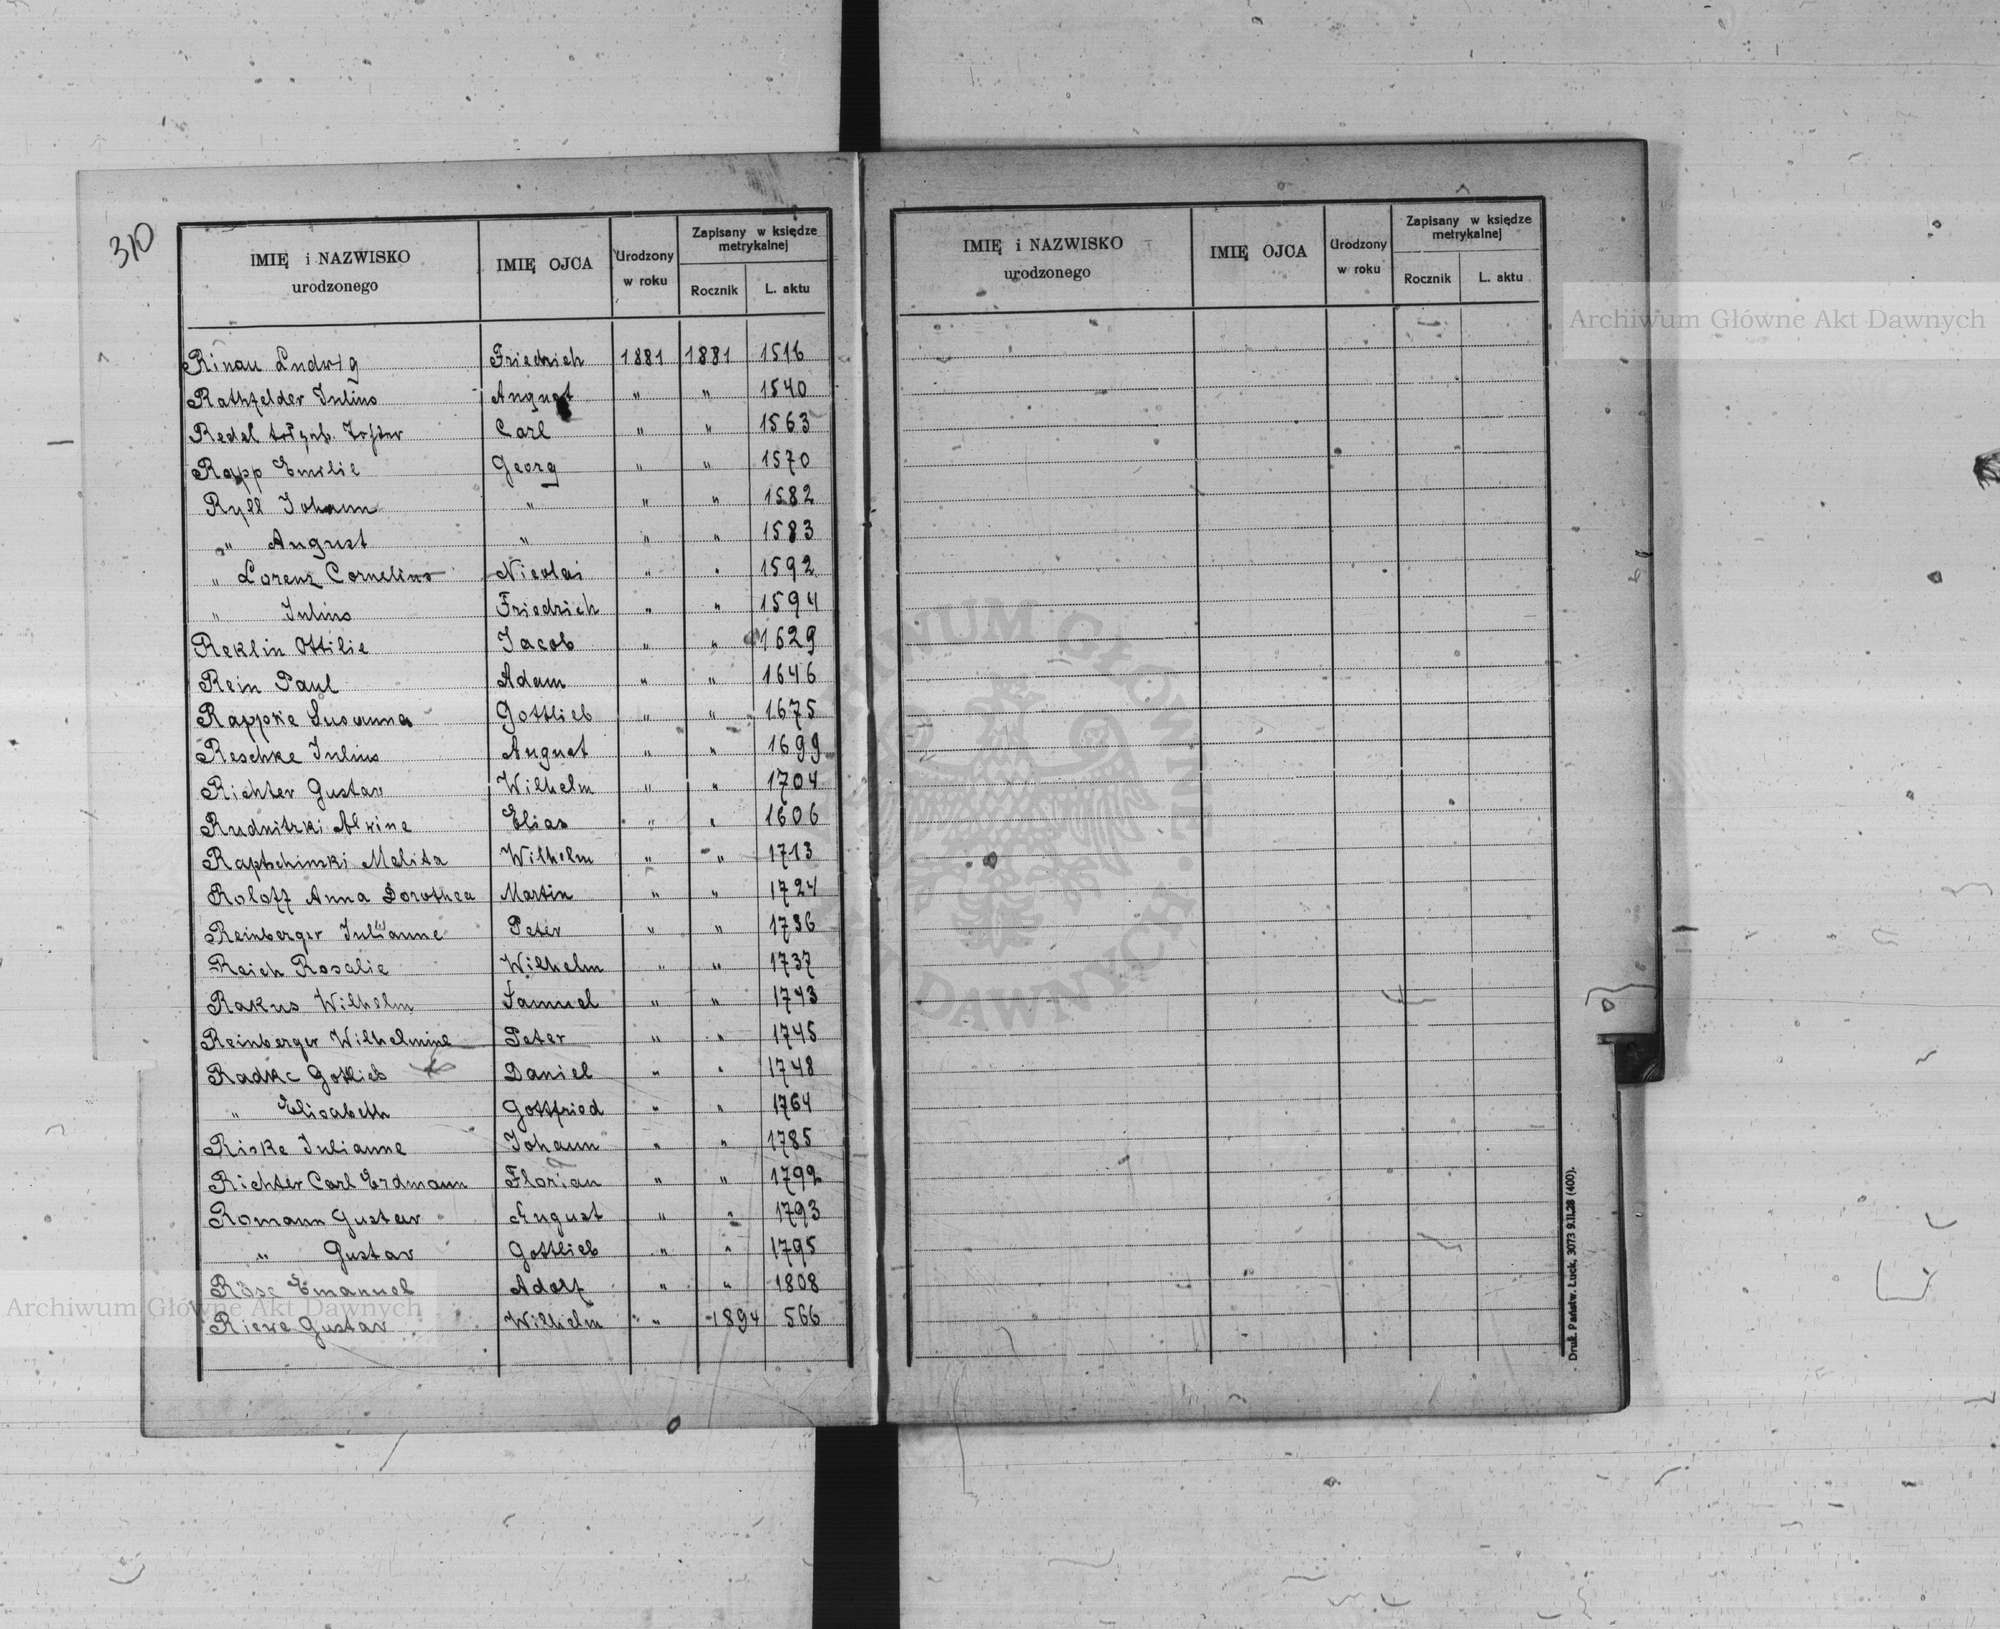 310
IMIĘ i NAZWISKO urodzonego | IMIĘ OJCA | Urodzony w roku | Zapisany w księdze metrykalnej
Rocznik | L. aktu
Rinau Ludwig Friedrich 1881 1881 1516
Rathfelder Julius August " " 1540
Redel Carl " " 1563
Rapp Emilie Georg " " 1570
Ryll Johann " " " 1582
" August " " " 1583
" Lorenz Cornelius Nicolai " " 1592
" Julius Friedrich " " 1594
Reklin Ottilie Jacob " " 1629
Rein Paul Adam " " 1646
Rappke Susanna Gottlieb " " 1675
Reschke Julius August " " 1699
Richter Gustav Wilhelm " " 1704
Rudnitzki Alvine Elias " " 1606
Raptschinski Melita Wilhelm " " 1713
Roloff Anna Dorothea Martin " " 1724
Reinberger Julianne Peter " " 1736
Reich Rosalie Wilhelm " " 1737
Rakus Wilhelm Samuel " " 1743
Reinberger Wilhelmine Peter " " 1745
Radke Gottlieb Daniel " " 1748
" Elisabeth Gottfried " " 1764
Riske Julianne Johann " " 1785
Richter Carl Erdmann Florian " " 1792
Romann Gustav August " " 1793
" Gustav Gottlieb " " 1795
Röse Emanuel Adolf " " 1808
Gustav Wilhelm " 1894 566
IMIĘ i NAZWISKO urodzonego | IMIĘ OJCA | Urodzony w roku | Zapisany w księdze metrykalnej
Rocznik | L. aktu
Druk. Państw. Łuck, 3073 9.II.28 (400).
Archiwum Główne Akt Dawnych
ARCHIWUM GŁÓWNE AKT DAWNYCH
Archiwum Główne Akt Dawnych